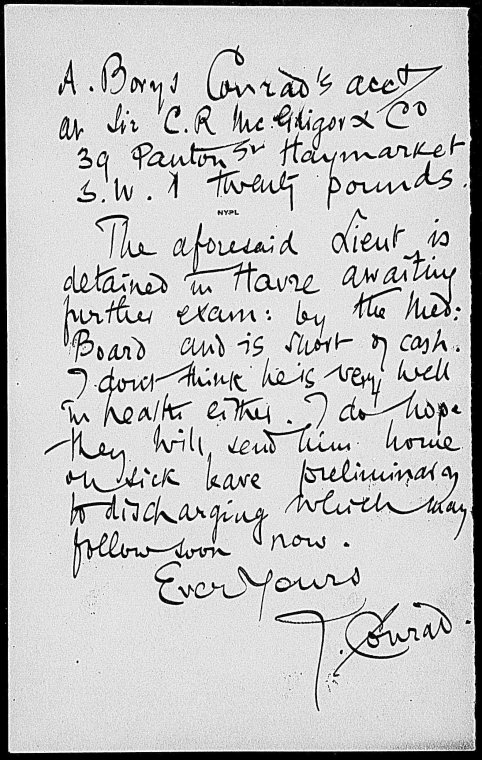 A. Borys Conrad's acct
at Sir C. R Mc.Grigor & Co
39 Panton St Haymarket
S. W. 1 twenty pounds.
NYPL
The aforesaid Lieut is
detained in Havre awaiting
further exam: by the Med:
Board and is short of cash.
I dont think he is very well
in health either. I do hope
they will send him home
on sick leave preliminary
to discharging which may
follow soon now.
Ever Yours
J. Conrad.